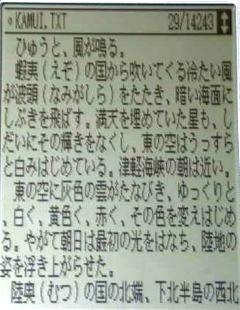 ◦KAMUI.TXT 29/14243
ひゅうと、風が鳴る。
蝦夷（えぞ）の国から吹いてくる冷たい風
が波頭（なみがしら）をたたき、暗い海面に
しぶきを飛ばす。満天を埋めていた星も、し
だいにその輝きをなくし、東の空はうっすら
と白みはじめている。津軽海峡の朝は近い。
東の空に灰色の雲がたなびき、ゆっくりと
、白く、黄色く、赤く、その色を変えはじめ
る。やがて朝日は最初の光をはなち、陸地の
姿を浮き上がらせた。
陸奥（むつ）の国の北端、下北半島の西北